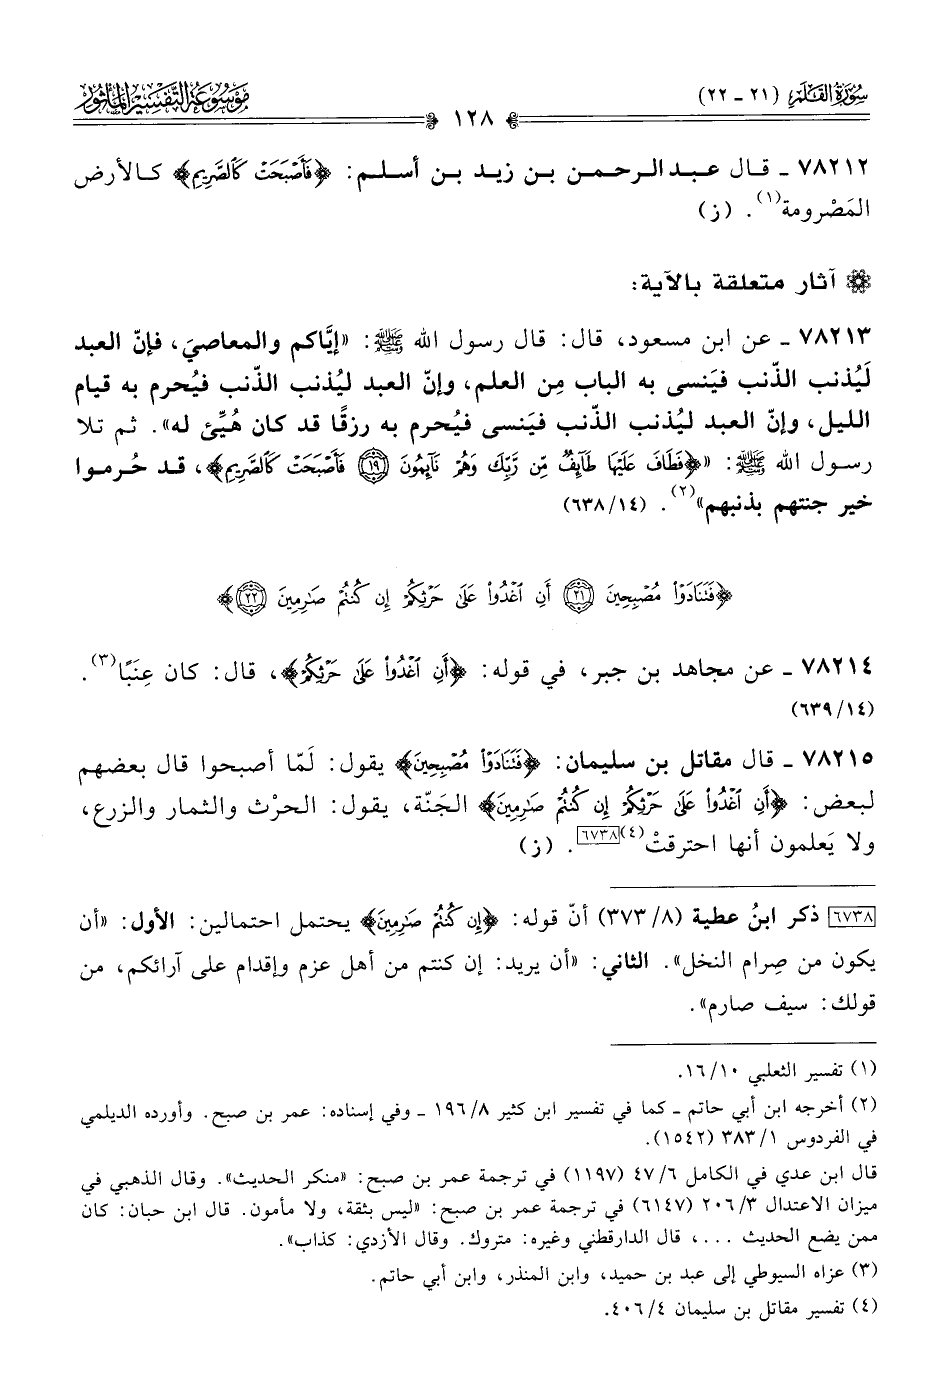 سورة القلم (٢١ - ٢٢)
١٢٨
موسوعة التفسير المأثور
٧٨٢١٢ - قال عبد الرحمن بن زيد بن أسلم: ﴿فَأَصْبَحَتْ كَالصَّرِيمِ﴾ كالأرض
المَصْرومة(١). (ز)
آثار متعلقة بالآية:
٧٨٢١٣ - عن ابن مسعود، قال: قال رسول الله ﷺ: «إيَّاكم والمعاصيَ، فإنّ العبد
لَيُذنب الذّنب فيَنسى به الباب مِن العلم، وإنّ العبد ليُذنب الذّنب فيُحرم به قيام
الليل، وإنّ العبد ليُذنب الذّنب فيَنسى فيُحرم به رزقًا قد كان هُيِّئ له». ثم تلا
رسول الله ﷺ: «﴿فَطَافَ عَلَيْهَا طَآئِفٌ مِّن رَّبِّكَ وَهُمْ نَآئِمُونَ ١٩ فَأَصْبَحَتْ كَالصَّرِيمِ﴾، قد حُرموا
خير جنتهم بذنبهم»(٢). (٦٣٨/١٤)
﴿فَتَنَادَوْا مُصْبِحِينَ ٢١ أَنِ اغْدُوا عَلَى حَرْثِكُمْ إِن كُنتُمْ صَارِمِينَ ٢٢﴾
٧٨٢١٤ - عن مجاهد بن جبر، في قوله: ﴿أَنِ اغْدُوا عَلَى حَرْثِكُمْ﴾، قال: كان عِنَبًا(٣).
(٦٣٩/١٤)
٧٨٢١٥ - قال مقاتل بن سليمان: ﴿فَتَنَادَوْا مُصْبِحِينَ﴾ يقول: لَمّا أصبحوا قال بعضهم
لبعض: ﴿أَنِ اغْدُوا عَلَى حَرْثِكُمْ إِن كُنتُمْ صَارِمِينَ﴾ الجَنّة، يقول: الحرْث والثمار والزرع،
ولا يَعلمون أنها احترقتْ(٤)[٦٧٣٨]. (ز)
[٦٧٣٨] ذكر ابنُ عطية (٨/ ٣٧٣) أنّ قوله: ﴿إِن كُنتُمْ صَارِمِينَ﴾ يحتمل احتمالين: الأول: «أن
يكون من صِرام النخل». الثاني: «أن يريد: إن كنتم من أهل عزم وإقدام على آرائكم، من
قولك: سيف صارم».
(١) تفسير الثعلبي ١٦/١٠.
(٢) أخرجه ابن أبي حاتم - كما في تفسير ابن كثير ١٩٦/٨ - وفي إسناده: عمر بن صبح. وأورده الديلمي
في الفردوس ٣٨٣/١ (١٥٤٢).
قال ابن عدي في الكامل ٤٧/٦ (١١٩٧) في ترجمة عمر بن صبح: «منكر الحديث». وقال الذهبي في
ميزان الاعتدال ٢٠٦/٣ (٦١٤٧) في ترجمة عمر بن صبح: «ليس بثقة، ولا مأمون. قال ابن حبان: كان
ممن يضع الحديث ...، قال الدارقطني وغيره: متروك. وقال الأزدي: كذاب».
(٣) عزاه السيوطي إلى عبد بن حميد، وابن المنذر، وابن أبي حاتم.
(٤) تفسير مقاتل بن سليمان ٤٠٦/٤.